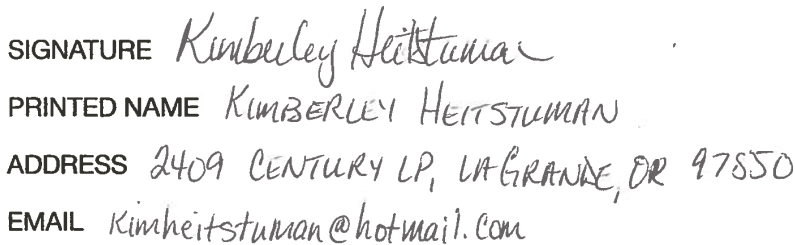 SIGNATURE Kimberley Heitstuman
PRINTED NAME KIMBERLEY HEITSTUMAN
ADDRESS 2409 CENTURY LP, LAGRANDE, OR 97850
EMAIL Kimheitstuman@hotmail.com